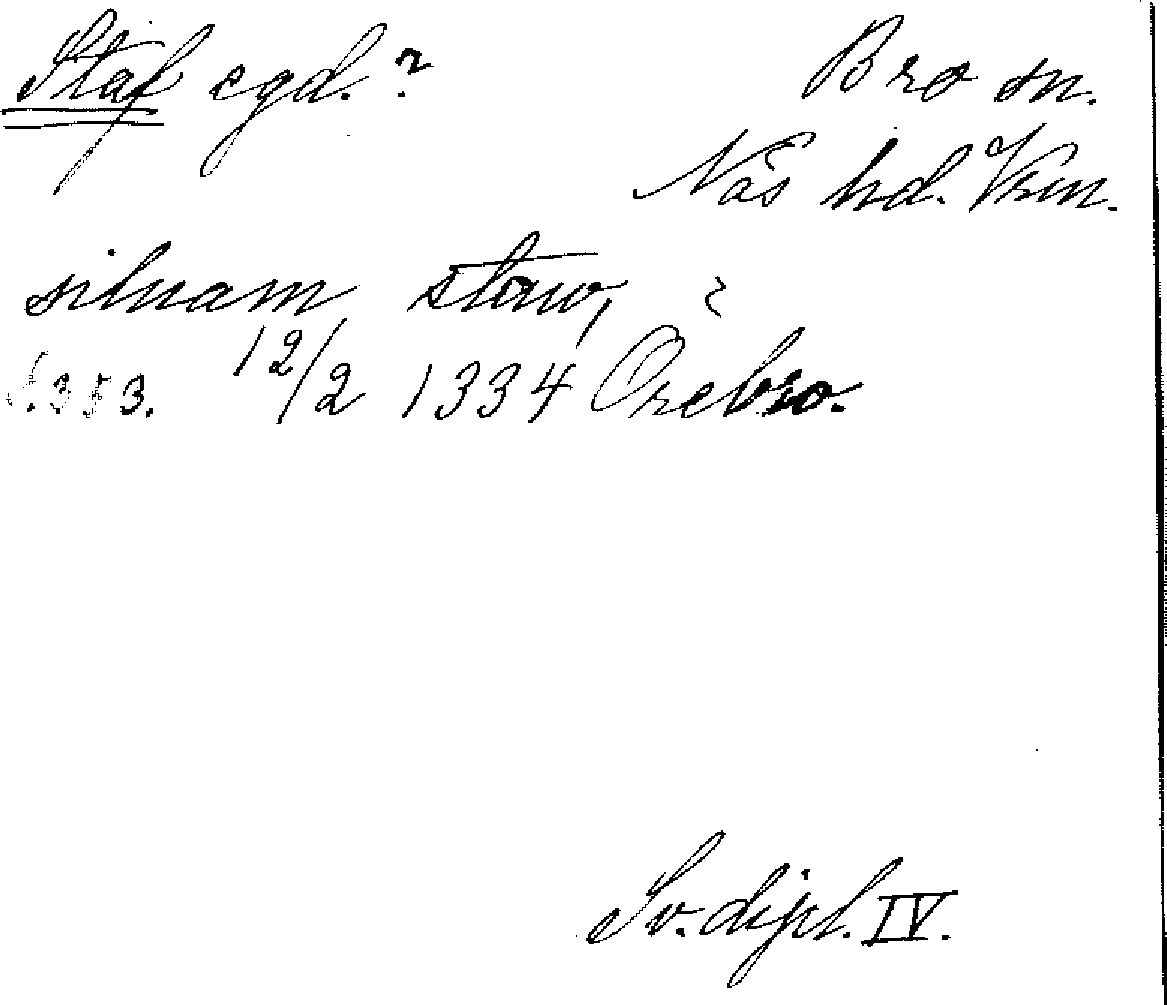 Staf egd.?
Bro sn.
Näs hd. Vrm.
siluam staw, ?
S. 353. 12/2 1334 Örebro.
Sv. dipl. IV.